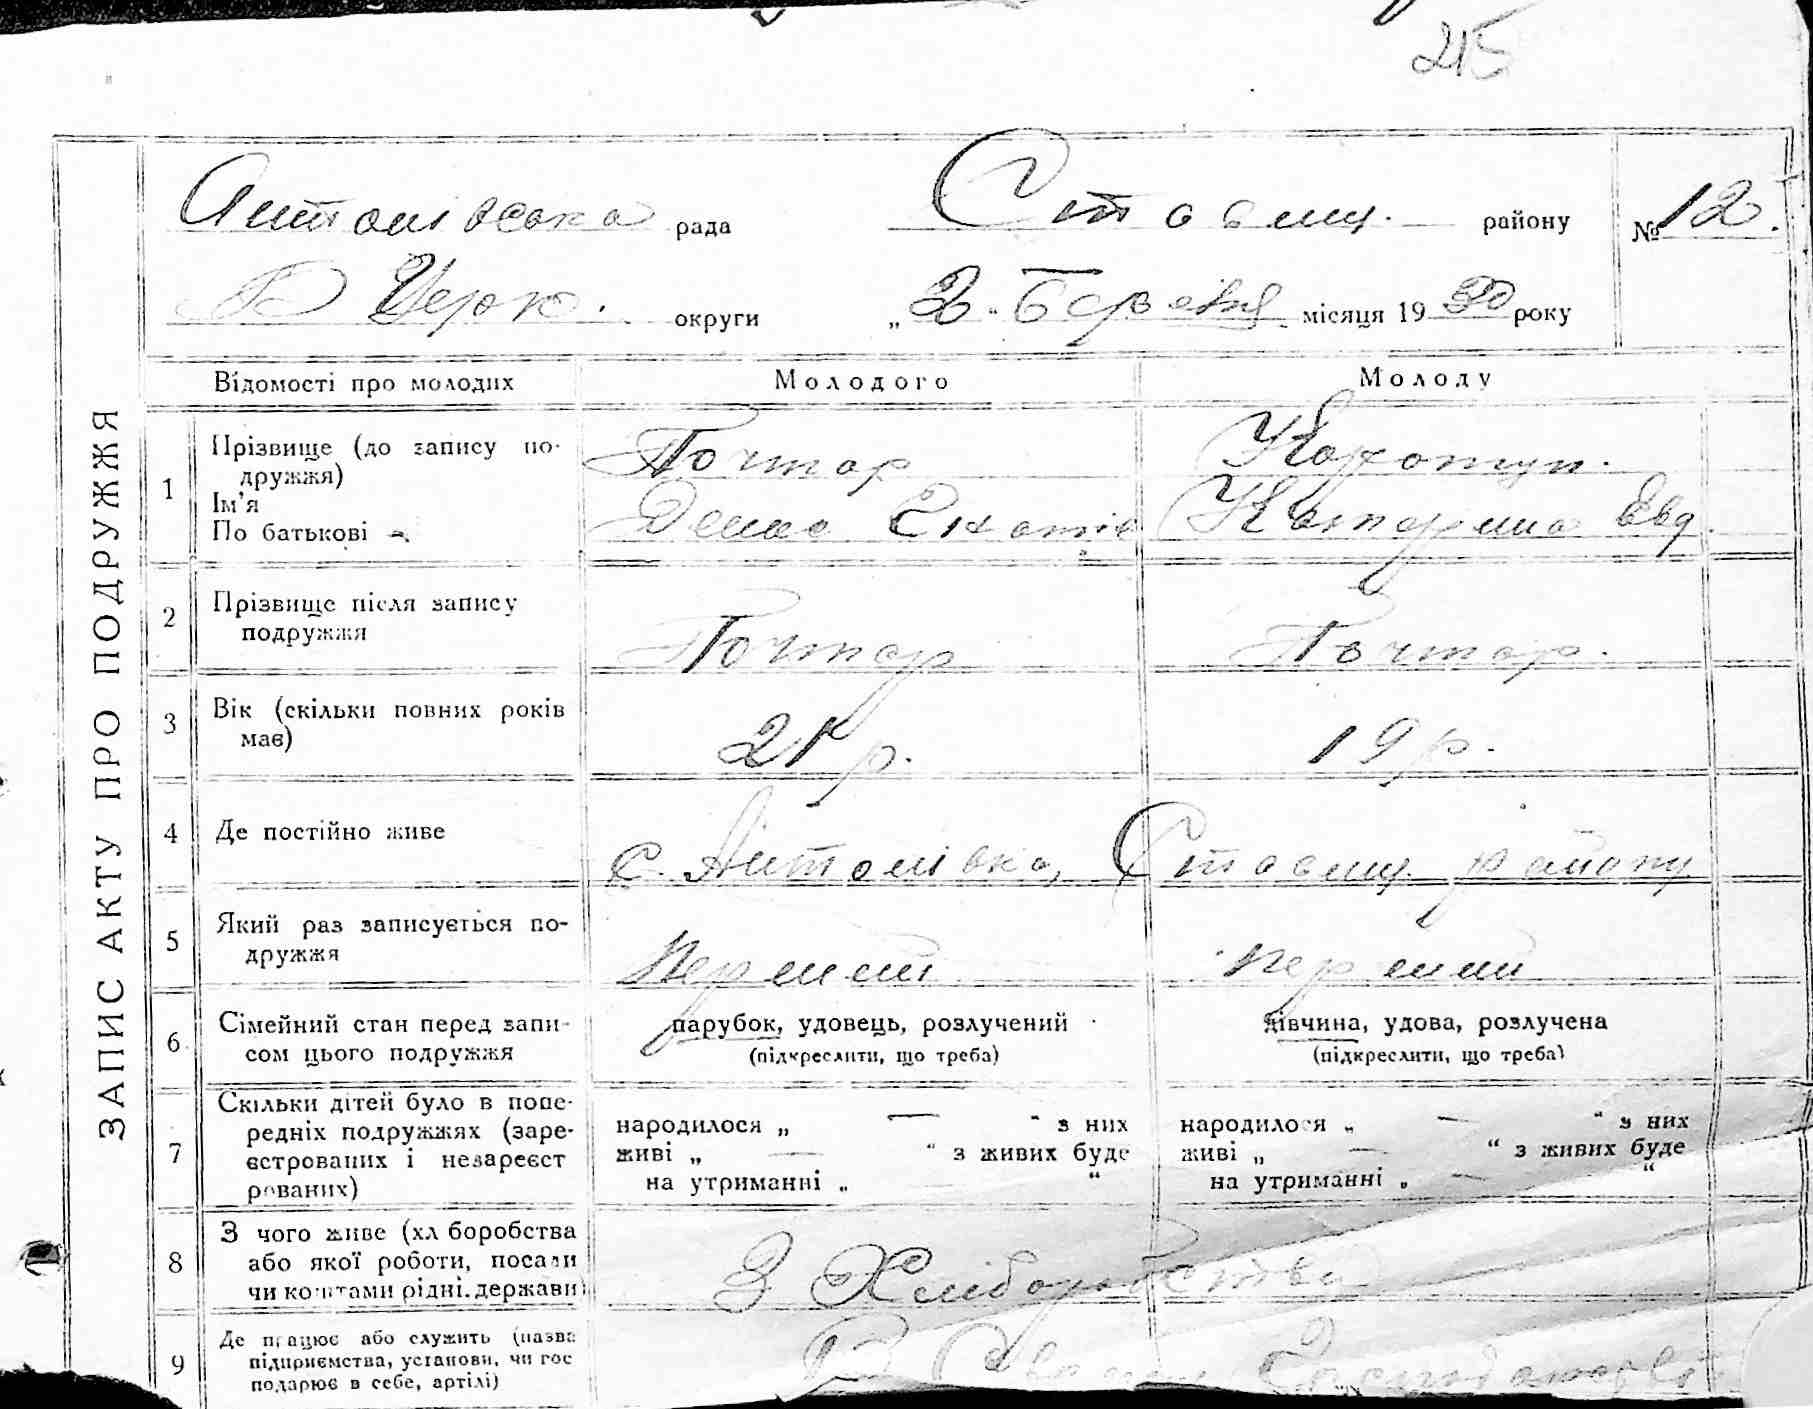 215
Антонівська рада Ставищ. району № 12.
Б Церк. округи „2" Березня місяця 1930 року
ЗАПИС АКТУ ПРО ПОДРУЖЖЯ
Відомості про молодих Молодого Молоду
1 Прізвище (до запису по- Почтар Коротун.
дружжя)
Ім'я
По батькові Денис Гнатів Катерина Евд.
2 Прізвище після запису
подружжя Почтар Почтар.
3 Вік (скільки повних років
має) 21 р. 19 р.
4 Де постійно живе с. Антонівка, Ставищ. району
5 Який раз записується по-
дружжя Перший перший
6. Сімейний стан перед запи- парубок, удовець, розлучений дівчина, удова, розлучена
сом цього подружжя (підкреслити, що треба) (підкреслити, що треба)
7 Скільки дітей було в попе-
редніх подружжях (заре- народилося „ — " з них народилося „ — " з них
єстрованих і незареєст живі „ — " з живих буде живі „ — " з живих буде
рованих) на утриманні „ " на утриманні „ — "
8 З чого живе (хліборобства
або якої роботи, посади
чи коштами рідні. держави) З Хліборобства
9 Де працює або служить (назва
підприємства, установи, чи гос В Своїм Господарстві
подарює в себе, артілі)